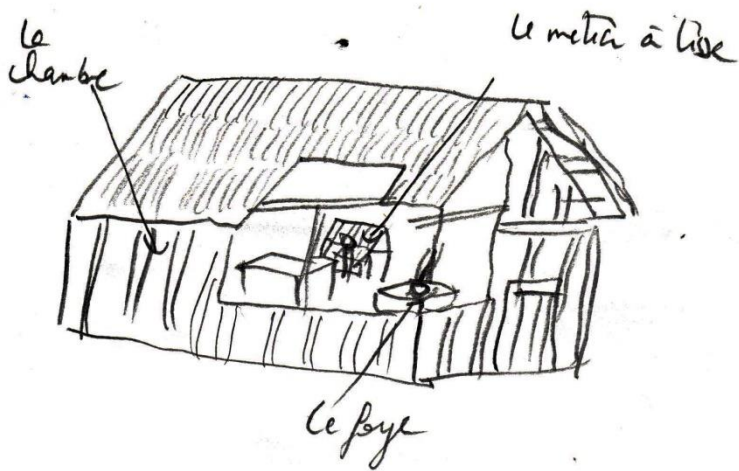 la
chambre
le métier à tisse
le foye